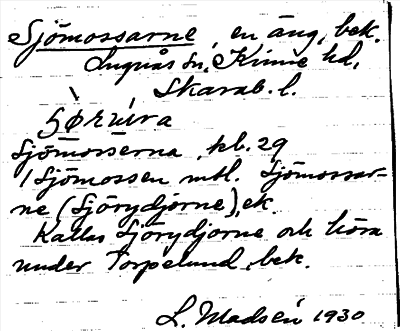 Sjömossarne, en äng, bek.
Lugnås sn, Kinne hd,
Skarab. l.
Sjömosserna, kb. 29
1 Sjömossen mtl. Sjömossar-
ne (Sjörydjorne), ek.
Kallas Sjörydjorne och höra
under Torpelund, bek.
L. Madsén 1930